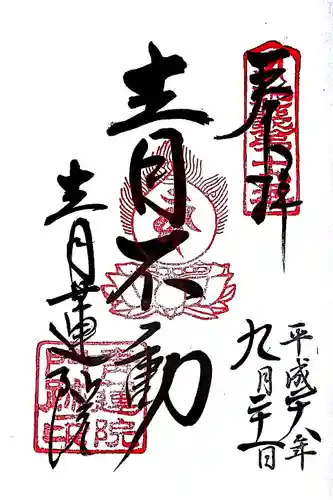 奉拝
青不動
青蓮院
平成二十八年
九月二十二日